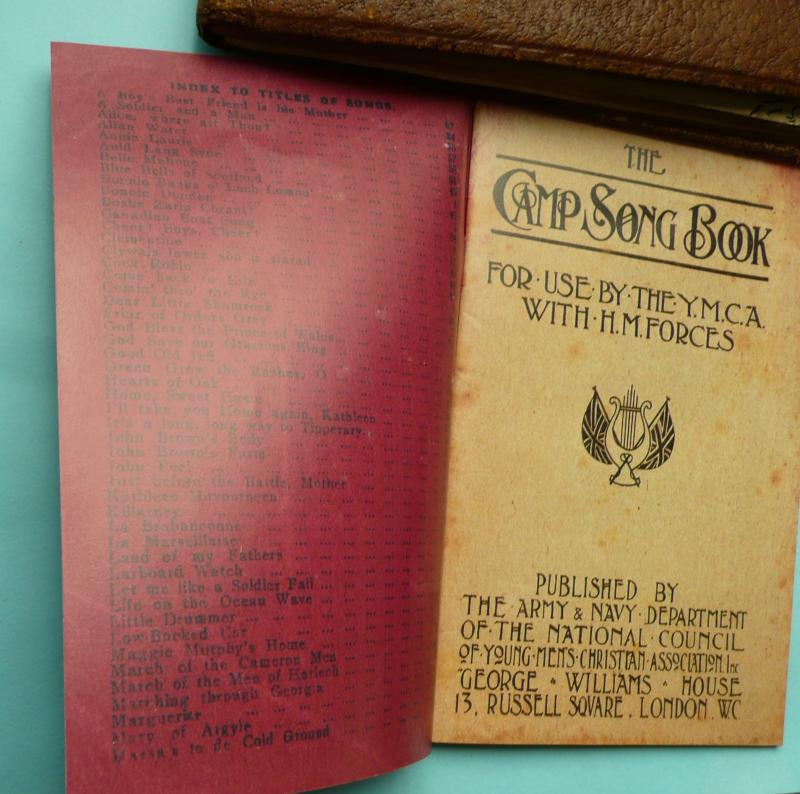 INDEX TO TITLES OF SONGS.
A Boy's Best Friend is his Mother
A Soldier and a Man
Alice, where art Thou?
Allan Water
Annie Laurie
Auld Lang Syne
Belle Mahone
Blue Bells of Scotland
Bonnie Banks o' Loch Lomond
Bonnie Dundee
Canadian Boat Song
Cheer! Boys, Cheer!
Clementine
Cock Robin
Come back to Erin
Comin' thro' the Rye
Dear Little Shamrock
Friar of Orders Grey
God Bless the Prince of Wales
God Save our Gracious King
Good Old Jeff
Green Grow the Rashes, O
Hearts of Oak
Home, Sweet Home
I'll take you Home again, Kathleen
It's a long, long way to Tipperary
John Brown's Body
John Brown's Farm
John Peel
Just before the Battle, Mother
Kathleen Mavourneen
Killarney
La Brabanconne
La Marseillaise
Land of my Fathers
Larboard Watch
Let me like a Soldier Fall
Life on the Ocean Wave
Little Drummer
Low-Backed Car
Maggie Murphy's Home
March of the Cameron Men
March of the Men of Harlech
Marching through Georgia
Marguerite
Mary of Argyle
Massa's in de Cold Ground
THE
CAMP SONG BOOK
FOR·USE·BY·THE Y.M.C.A.
WITH·H.M.FORCES
PUBLISHED BY
THE·ARMY & NAVY·DEPARTMENT
OF·THE NATIONAL·COUNCIL
OF·YOUNG·MEN'S·CHRISTIAN·ASSOCIATION. Inc
GEORGE · WILLIAMS · HOUSE
13, RUSSELL SQUARE, LONDON. W.C